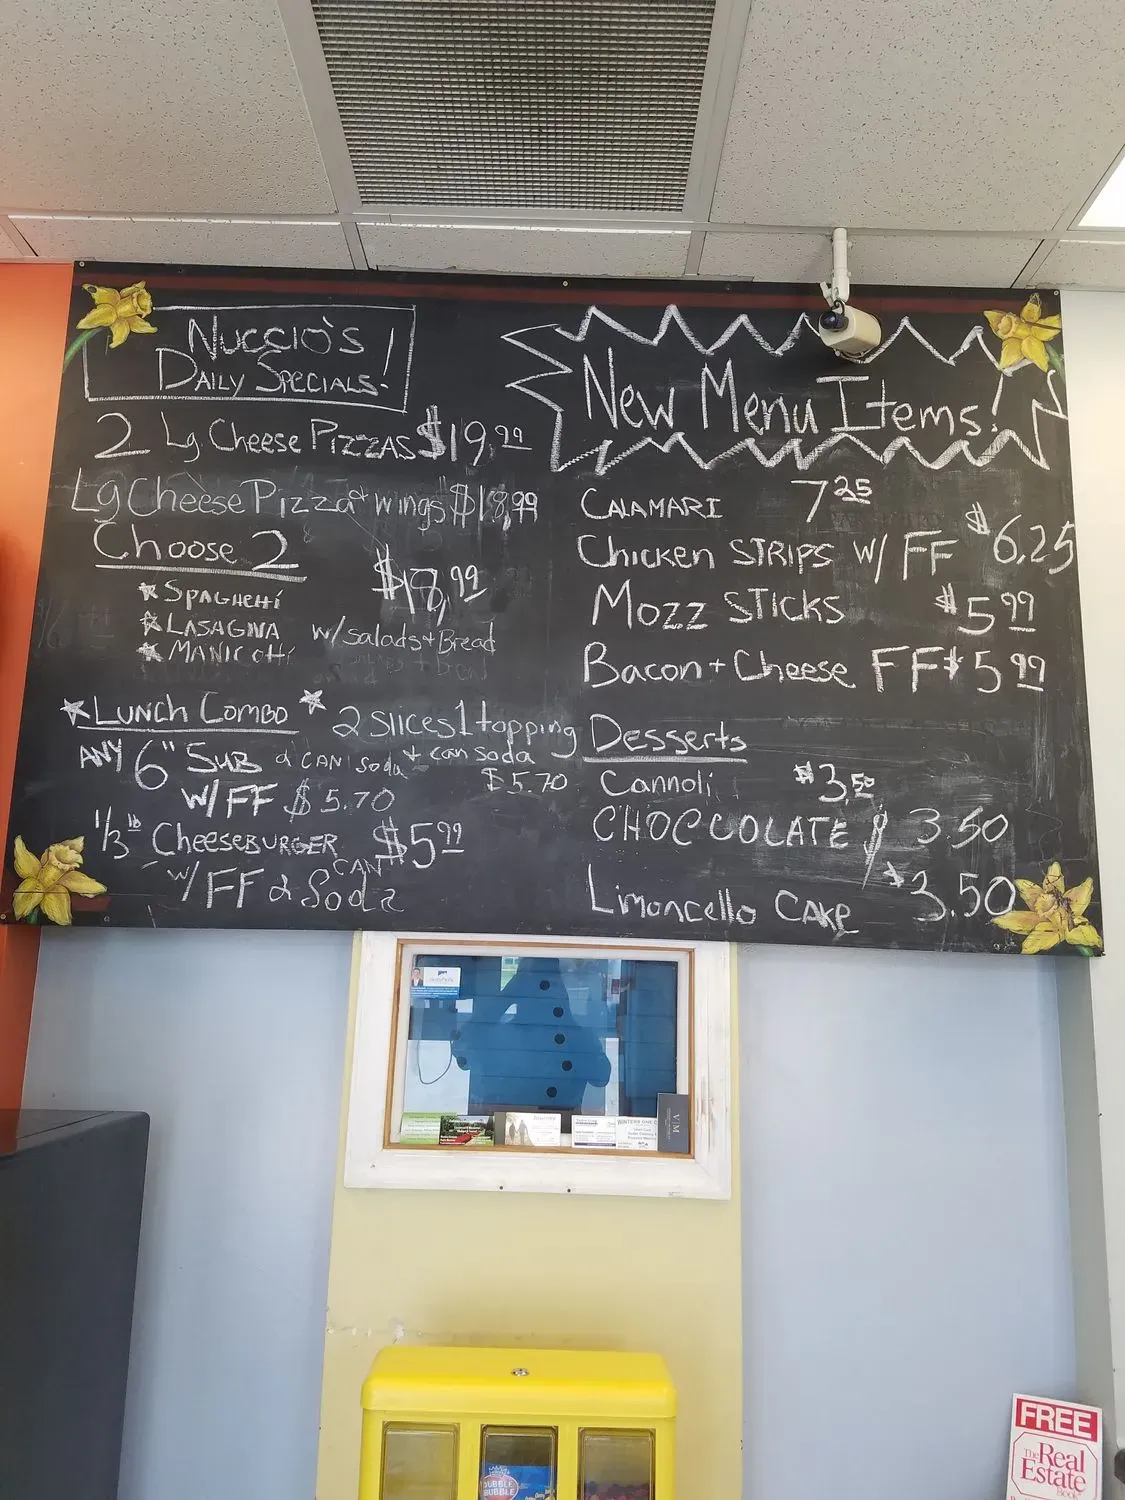 Nuccio's
Daily Specials!
2 Lg Cheese Pizzas $19.99
Lg Cheese Pizza + wings $18.99
Choose 2
$18.99
★ Spaghetti
★ Lasagna
★ Manicotti
w/ salads + Bread
★ Lunch Combo ★
Any 6" Sub & can soda
w/ FF $5.70
2 slices 1 topping
+ can soda
$5.70
1/3 lb Cheeseburger $5.99
w/ FF & can Soda
New Menu Items!
Calamari 7.25
Chicken Strips w/ FF $6.25
Mozz Sticks $5.99
Bacon + Cheese FF $5.99
Desserts
Cannoli $3.50
CHOCCOLATE $3.50
Limoncello Cake $3.50
WINTERS ONE
VM
DUBBLE
BUBBLE
FREE
The Real
Estate
Book